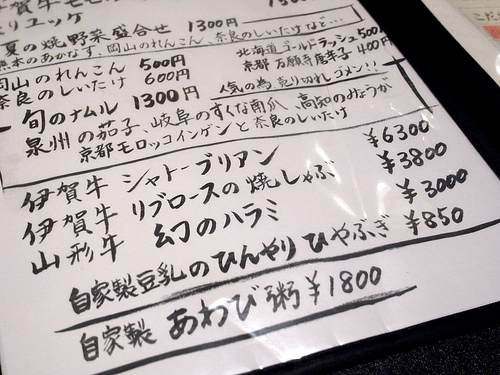 賀牛モモ
ユッケ
夏の焼野菜盛合せ 1300円
熊本のあかなす、岡山のれんこん、奈良のしいたけなど…
岡山のれんこん 500円
北海道ゴールドラッシュ 500
奈良のしいたけ 600円
京都万願寺唐辛子 400円
旬のナムル 1300円
人気の為 売り切れゴメン!!
泉州の茄子、岐阜のすくな南瓜、高知のみょうが
京都モロッコインゲンと奈良のしいたけ
伊賀牛 シャトーブリアン ¥6300
伊賀牛 リブロースの焼しゃぶ ¥3800
山形牛 幻のハラミ ¥3000
自家製豆乳のひんやりひやぶぎ ¥850
自家製 あわび粥 ¥1800
こだ